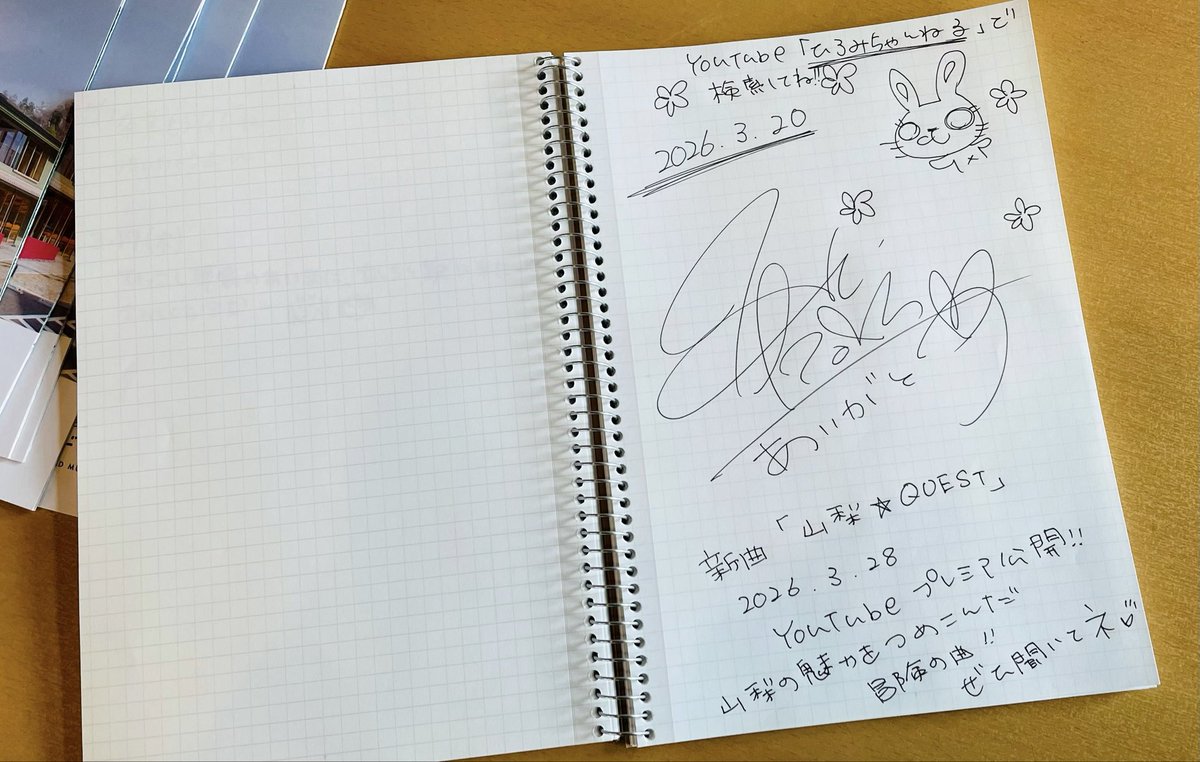 YouTube「ひろみちゃんねる」で
検索してね!!
2026.3.20
ありがと
新曲「山梨☆QUEST」
2026.3.28
YouTube プレミア公開!!
山梨の魅力をつめこんだ
冒険の曲!!
ぜひ聞いてネ♡